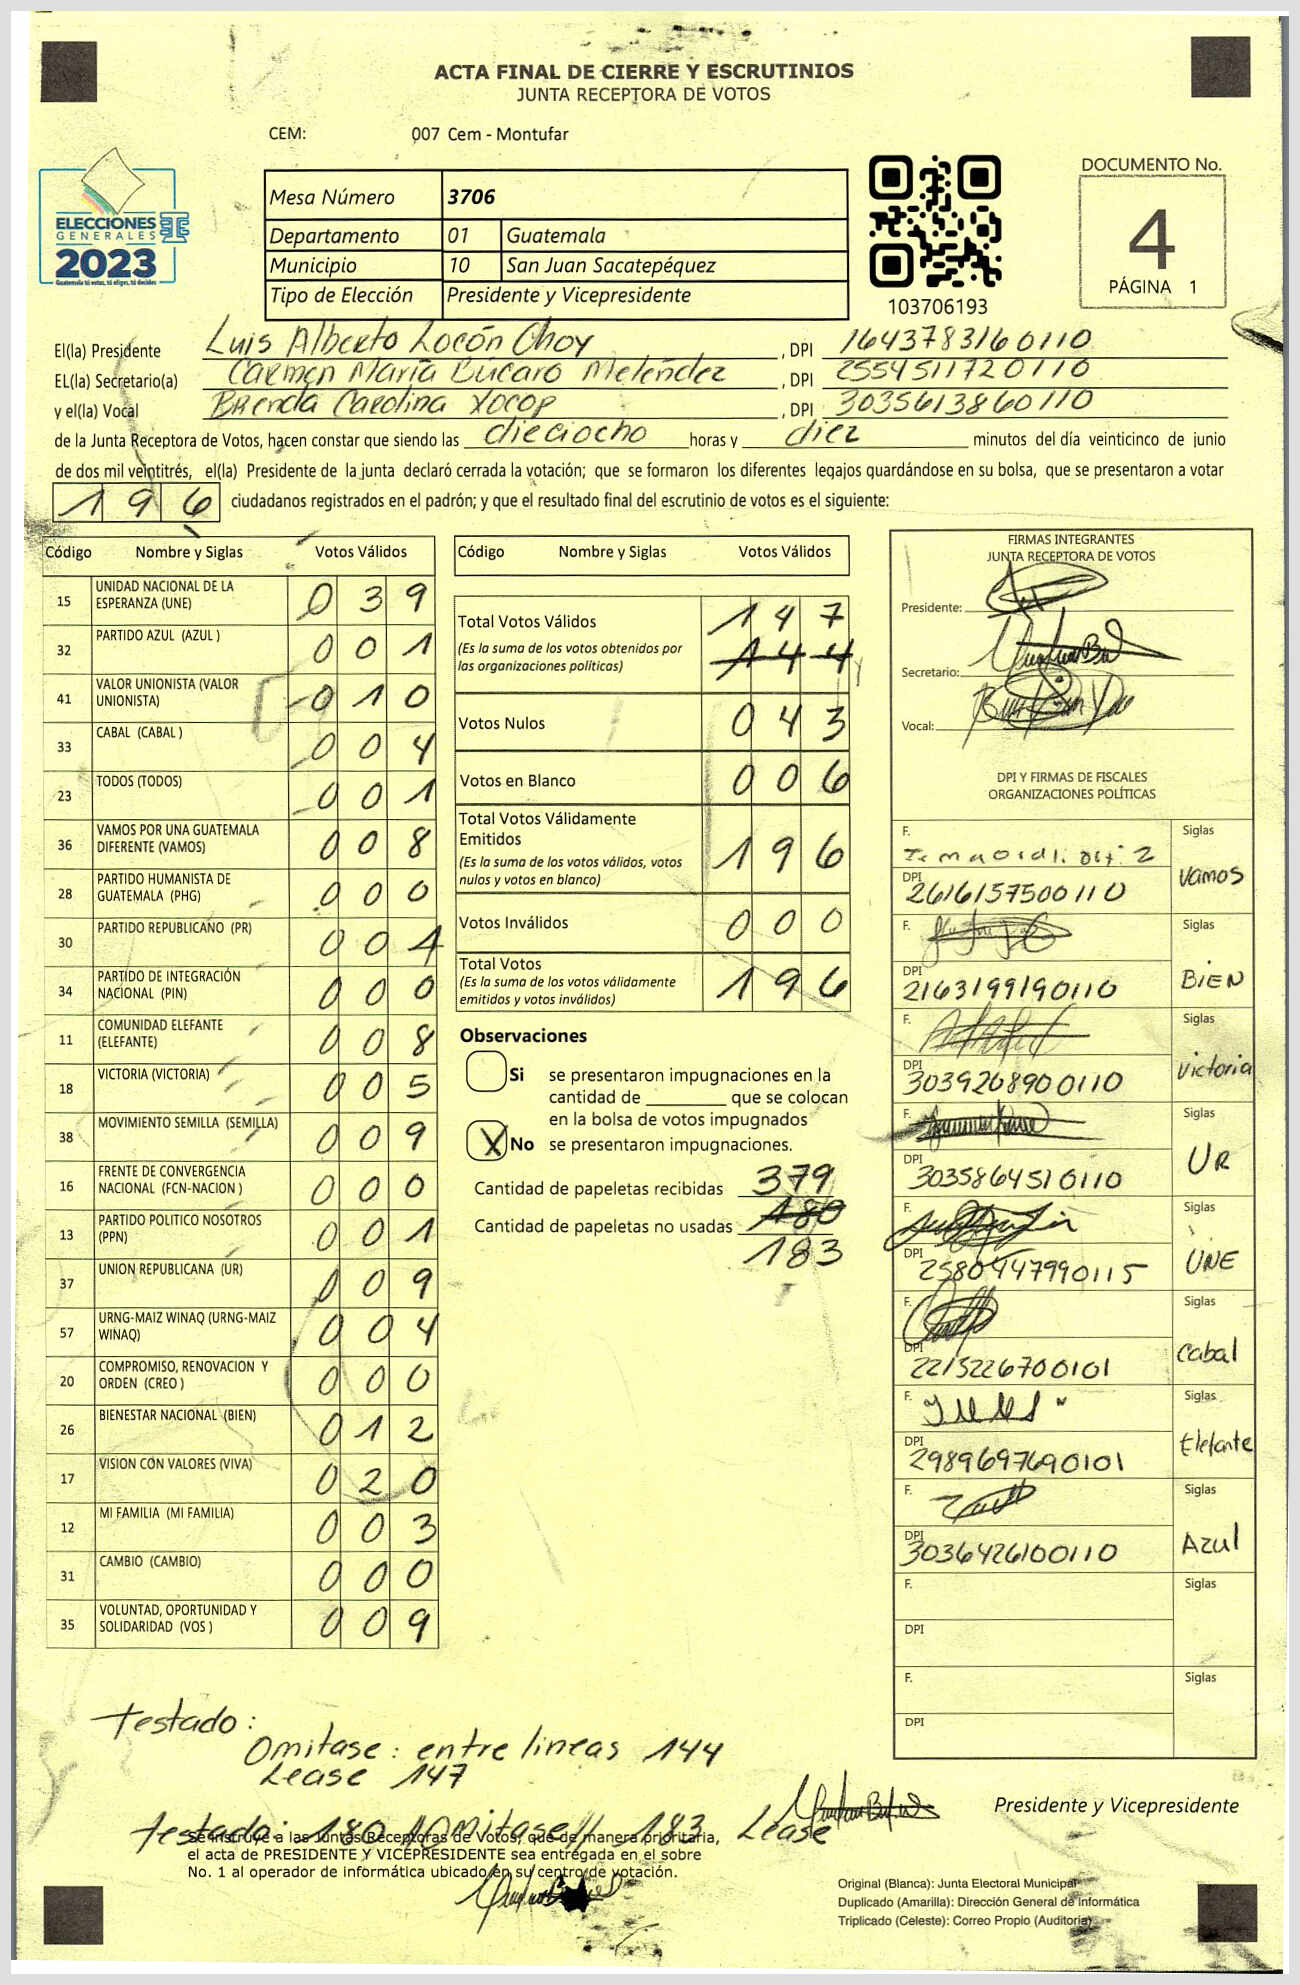 ACTA FINAL DE CIERRE Y ESCRUTINIOS
JUNTA RECEPTORA DE VOTOS
CEM: 007 Cem - Montufar
ELECCIONES
GENERALES
2023
Guatemala tú votas, tú eliges, tú decides
Mesa Número 3706
Departamento 01 Guatemala
Municipio 10 San Juan Sacatepéquez
Tipo de Elección Presidente y Vicepresidente
103706193
DOCUMENTO No.
4
PÁGINA 1
El(la) Presidente Luis Alberto Locón Choy, DPI 1643783160110
EL(la) Secretario(a) Carmen María Búcaro Meléndez, DPI 2554511720110
y el(la) Vocal Brenda Carolina Xocop, DPI 3035613860110
de la Junta Receptora de Votos, hacen constar que siendo las dieciocho horas y diez minutos del día veinticinco de junio
de dos mil veintitrés, el(la) Presidente de la junta declaró cerrada la votación; que se formaron los diferentes legajos guardándose en su bolsa, que se presentaron a votar
196 ciudadanos registrados en el padrón; y que el resultado final del escrutinio de votos es el siguiente:
Código Nombre y Siglas Votos Válidos
15 UNIDAD NACIONAL DE LA ESPERANZA (UNE) 039
32 PARTIDO AZUL (AZUL ) 001
41 VALOR UNIONISTA (VALOR UNIONISTA) 010
33 CABAL (CABAL ) 004
23 TODOS (TODOS) 001
36 VAMOS POR UNA GUATEMALA DIFERENTE (VAMOS) 008
28 PARTIDO HUMANISTA DE GUATEMALA (PHG) 000
30 PARTIDO REPUBLICANO (PR) 004
34 PARTIDO DE INTEGRACIÓN NACIONAL (PIN) 000
11 COMUNIDAD ELEFANTE (ELEFANTE) 008
18 VICTORIA (VICTORIA) 005
38 MOVIMIENTO SEMILLA (SEMILLA) 009
16 FRENTE DE CONVERGENCIA NACIONAL (FCN-NACION ) 000
13 PARTIDO POLITICO NOSOTROS (PPN) 001
37 UNION REPUBLICANA (UR) 009
57 URNG-MAIZ WINAQ (URNG-MAIZ WINAQ) 004
20 COMPROMISO, RENOVACION Y ORDEN (CREO ) 000
26 BIENESTAR NACIONAL (BIEN) 012
17 VISION CON VALORES (VIVA) 020
12 MI FAMILIA (MI FAMILIA) 003
31 CAMBIO (CAMBIO) 000
35 VOLUNTAD, OPORTUNIDAD Y SOLIDARIDAD (VOS ) 009
Código Nombre y Siglas Votos Válidos
Total Votos Válidos 147
(Es la suma de los votos obtenidos por las organizaciones políticas) 144
Votos Nulos 043
Votos en Blanco 006
Total Votos Válidamente Emitidos 196
(Es la suma de los votos válidos, votos nulos y votos en blanco)
Votos Inválidos 000
Total Votos 196
(Es la suma de los votos válidamente emitidos y votos inválidos)
Observaciones
Si se presentaron impugnaciones en la
cantidad de ________ que se colocan
en la bolsa de votos impugnados
X No se presentaron impugnaciones.
Cantidad de papeletas recibidas 379
Cantidad de papeletas no usadas 180
183
FIRMAS INTEGRANTES
JUNTA RECEPTORA DE VOTOS
Presidente:
Secretario:
Vocal:
DPI Y FIRMAS DE FISCALES
ORGANIZACIONES POLÍTICAS
F. Siglas
DPI 2616157500110 Vamos
F. Siglas
DPI 2163199190110 BIEN
F. Siglas
DPI 3039208900110 Victoria
F. Siglas
DPI 3035864510110 UR
F. Siglas
DPI 2580447990115 UNE
F. Siglas
DPI 2215226700101 Cabal
F. Siglas
DPI 2989697690101 Elefante
F. Siglas
DPI 3036426100110 Azul
F. Siglas
DPI
F. Siglas
DPI
testado:
Omitase: entre lineas 144
Lease 147
testado: 180 Omitase // 183 Lease
Se instruye a las Juntas Receptoras de Votos, que de manera prioritaria,
el acta de PRESIDENTE Y VICEPRESIDENTE sea entregada en el sobre
No. 1 al operador de informática ubicado en su centro de votación.
Presidente y Vicepresidente
Original (Blanca): Junta Electoral Municipal
Duplicado (Amarilla): Dirección General de Informática
Triplicado (Celeste): Correo Propio (Auditoría)